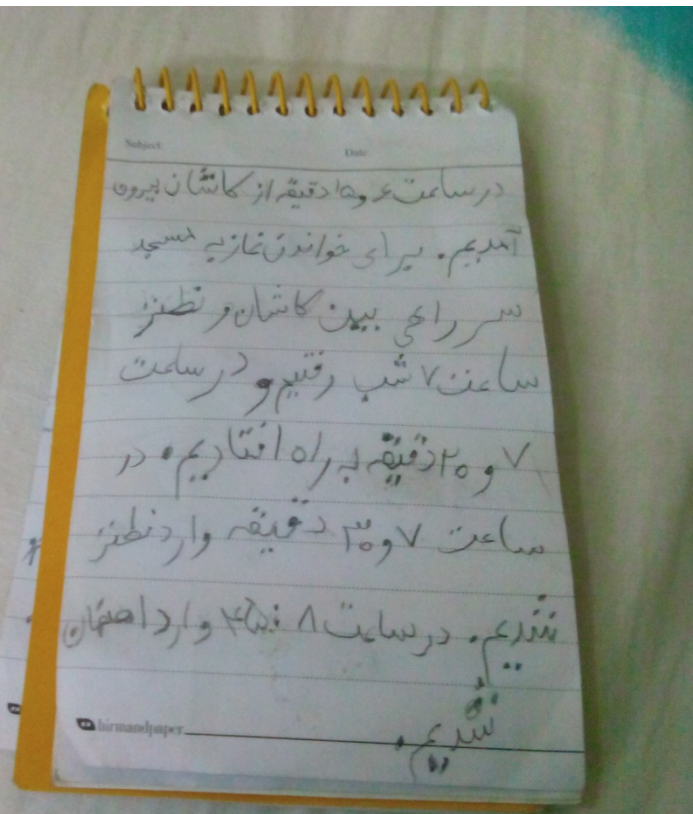 Subject:
Date:
در ساعت ۶ و ۱۵ دقیقه از کاشان بیرون
آمدیم. برای خواندن نماز به مسجد
سر راهی بین کاشان و نطنز
ساعت ۷ شب رفتیم و در ساعت
۷ و ۲۰ دقیقه به راه افتادیم. در
ساعت ۷ و ۳۰ دقیقه وارد نطنز
شدیم. در ساعت ۸:۴۵ وارد اصفهان
شدیم.
hirmandpaper